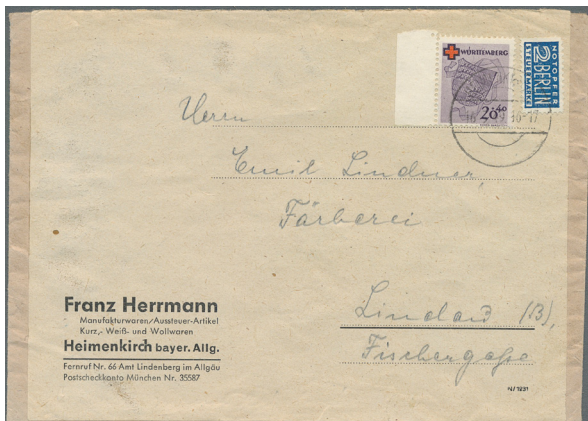 WÜRTTEMBERG
20+40
NOTOPFER
2 BERLIN
STEUERMARKE
Herrn
Emil Lindner
Färberei
Lindau (B),
Fischergaße
Franz Herrmann
Manufakturwaren/Aussteuer-Artikel
Kurz,- Weiß- und Wollwaren
Heimenkirch bayer. Allg.
Fernruf Nr. 66 Amt Lindenberg im Allgäu
Postscheckkonto München Nr. 35587